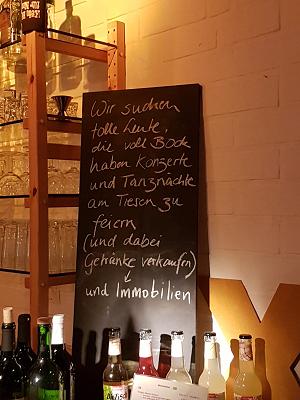 Wir suchen
tolle Leute,
die voll Bock
haben Konzerte
und Tanznächte
am Tresen zu
feiern
(und dabei
Getränke verkaufen)
↓
und Immobilien